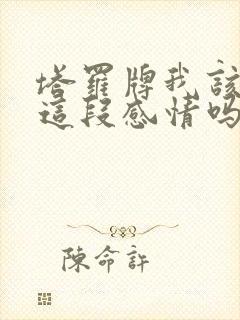 塔羅牌我該
這段感情吗
陳命許